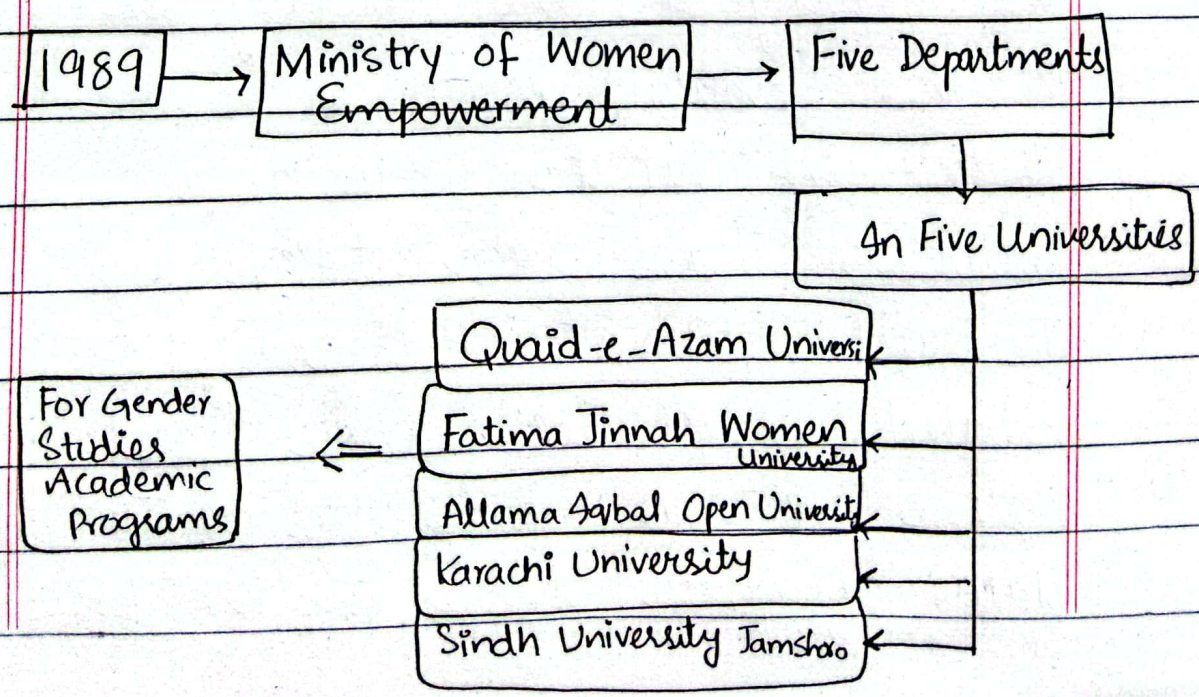 1989
Ministry of Women
Empowerment
Five Departments
In Five Universities
Quaid-e-Azam Universi
Fatima Jinnah Women
University
Allama Iqbal Open University
Karachi University
Sindh University Jamshoro
For Gender
Studies
Academic
Programs